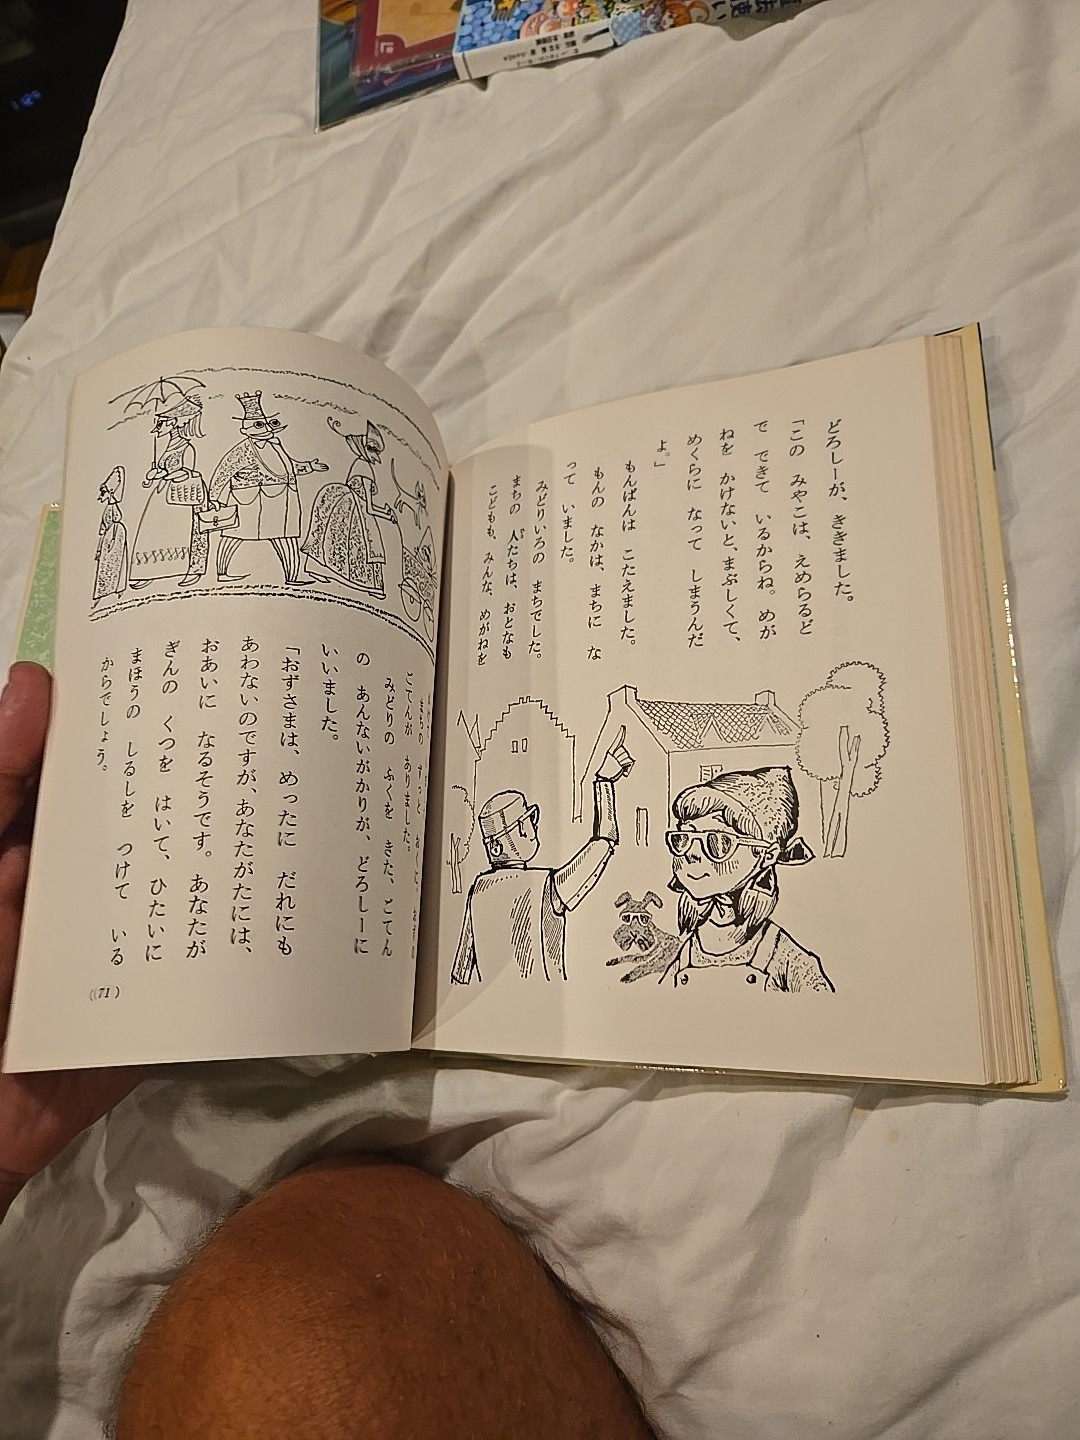 どろしーが、ききました。
「この みやこは、えめらるど
で できて いるからね。めが
ねを かけないと、まぶしくて、
めくらに なって しまうんだ
よ。」
もんばんは こたえました。
もんの なかは、まちに な
って いました。
みどりいろの まちでした。
まちの 人たちは、おとなも
こどもも、みんな、めがねを
まちの ずっと おくに、
ごてんが ありました。
みどりの ふくを きた、ごてん
の あんないがかりが、どろしーに
いいました。
「おずさまは、めったに だれにも
あわないのですが、あなたがたには、
おあいに なるそうです。あなたが
ぎんの くつを はいて、ひたいに
まほうの しるしを つけて いる
からでしょう。
(71)